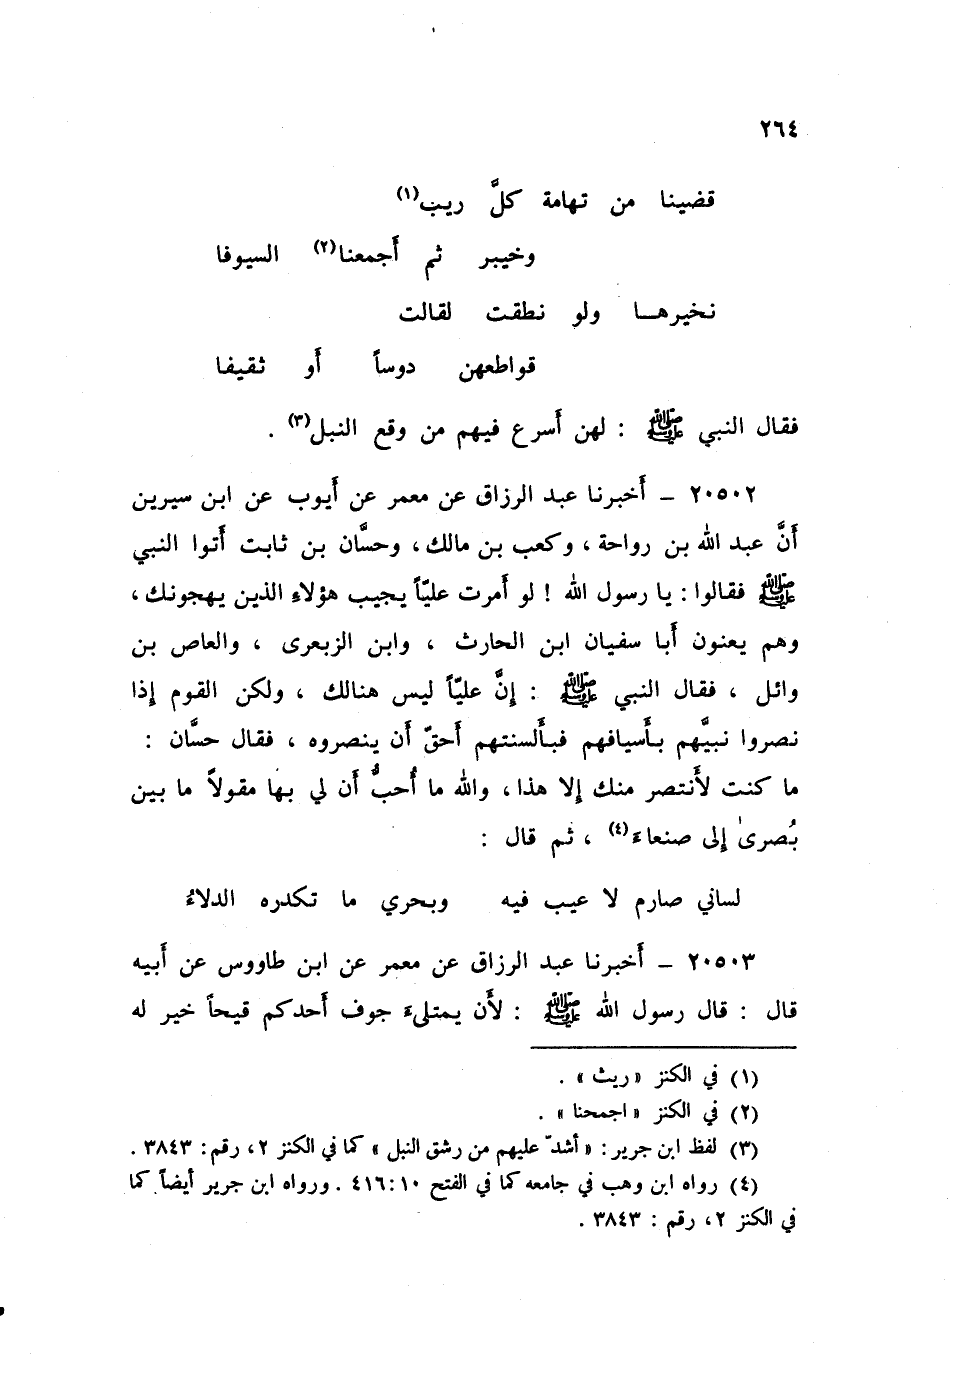 ٢٦٤
قضينا من تهامة كلَّ ريب(١)
وخيبر ثم أَجمعنا(٢) السيوفا
نخيرهـا ولو نطقت لقالت
قواطعهن دوساً أَو ثقيفا
فقال النبي ﷺ : لهن أَسرع فيهم من وقع النبل(٣) .
٢٠٥٠٢ – أَخبرنا عبد الرزاق عن معمر عن أَيوب عن ابن سيرين
أَنَّ عبد الله بن رواحة ، وكعب بن مالك ، وحسَّان بن ثابت أَتوا النبي
ﷺ فقالوا : يا رسول الله ! لو أَمرت عليّاً يجيب هؤلاءِ الذين يهجونك ،
وهم يعنون أَبا سفيان ابن الحارث ، وابن الزبعرى ، والعاص بن
وائل ، فقال النبي ﷺ : إِنَّ عليّاً ليس هنالك ، ولكن القوم إِذا
نصروا نبيَّهم بأَسيافهم فبأَلسنتهم أَحقّ أَن ينصروه ، فقال حسَّان :
ما كنت لأَنتصر منك إِلا هذا ، والله ما أُحبُّ أَن لي بها مقولاً ما بين
بُصرىٰ إِلى صنعاءَ(٤) ، ثم قال :
لساني صارم لا عيب فيه وبحري ما تكدره الدلاءُ
٢٠٥٠٣ – أَخبرنا عبد الرزاق عن معمر عن ابن طاووس عن أَبيه
قال : قال رسول الله ﷺ : لأَن يمتلىءَ جوف أَحدكم قيحاً خير له
(١) في الكنز « ريث » .
(٢) في الكنز « اجمحنا » .
(٣) لفظ ابن جرير : « أشدّ عليهم من رشق النبل » كما في الكنز ٢ ، رقم : ٣٨٤٣ .
(٤) رواه ابن وهب في جامعه كما في الفتح ١٠ : ٤١٦ . ورواه ابن جرير أيضاً كما
في الكنز ٢ ، رقم : ٣٨٤٣ .